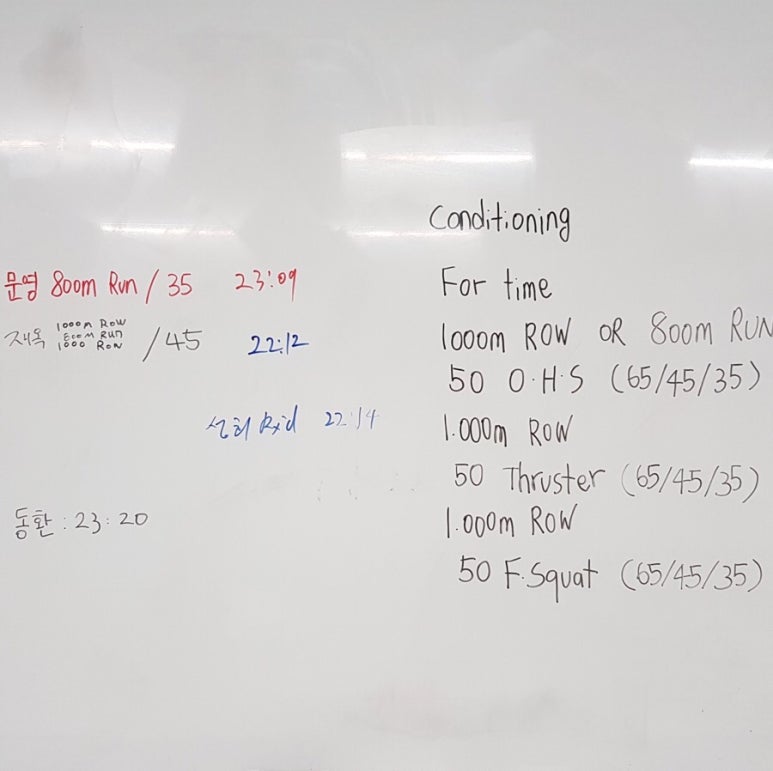 Conditioning
For time
1000m ROW OR 800m RUN
50 O.H.S (65/45/35)
1.000m ROW
50 Thruster (65/45/35)
1.000m ROW
50 F.Squat (65/45/35)
문영 800m Run / 35 23:09
재옥 1000m ROW
800m RUN
1000 ROW
/45 22:12
선희 Rx'd 22:14
동환 : 23 : 20